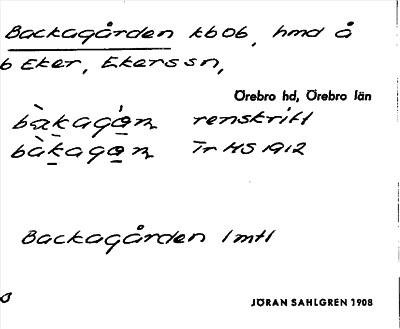 Backagården kbob, hmd å
b Eker, Ekers sn,
Örebro hd, Örebro län
bàkagɷ́n renskrift
bàkagɷn Tr HS 1912
Backagården 1 mtl
JÖRAN SAHLGREN 1908